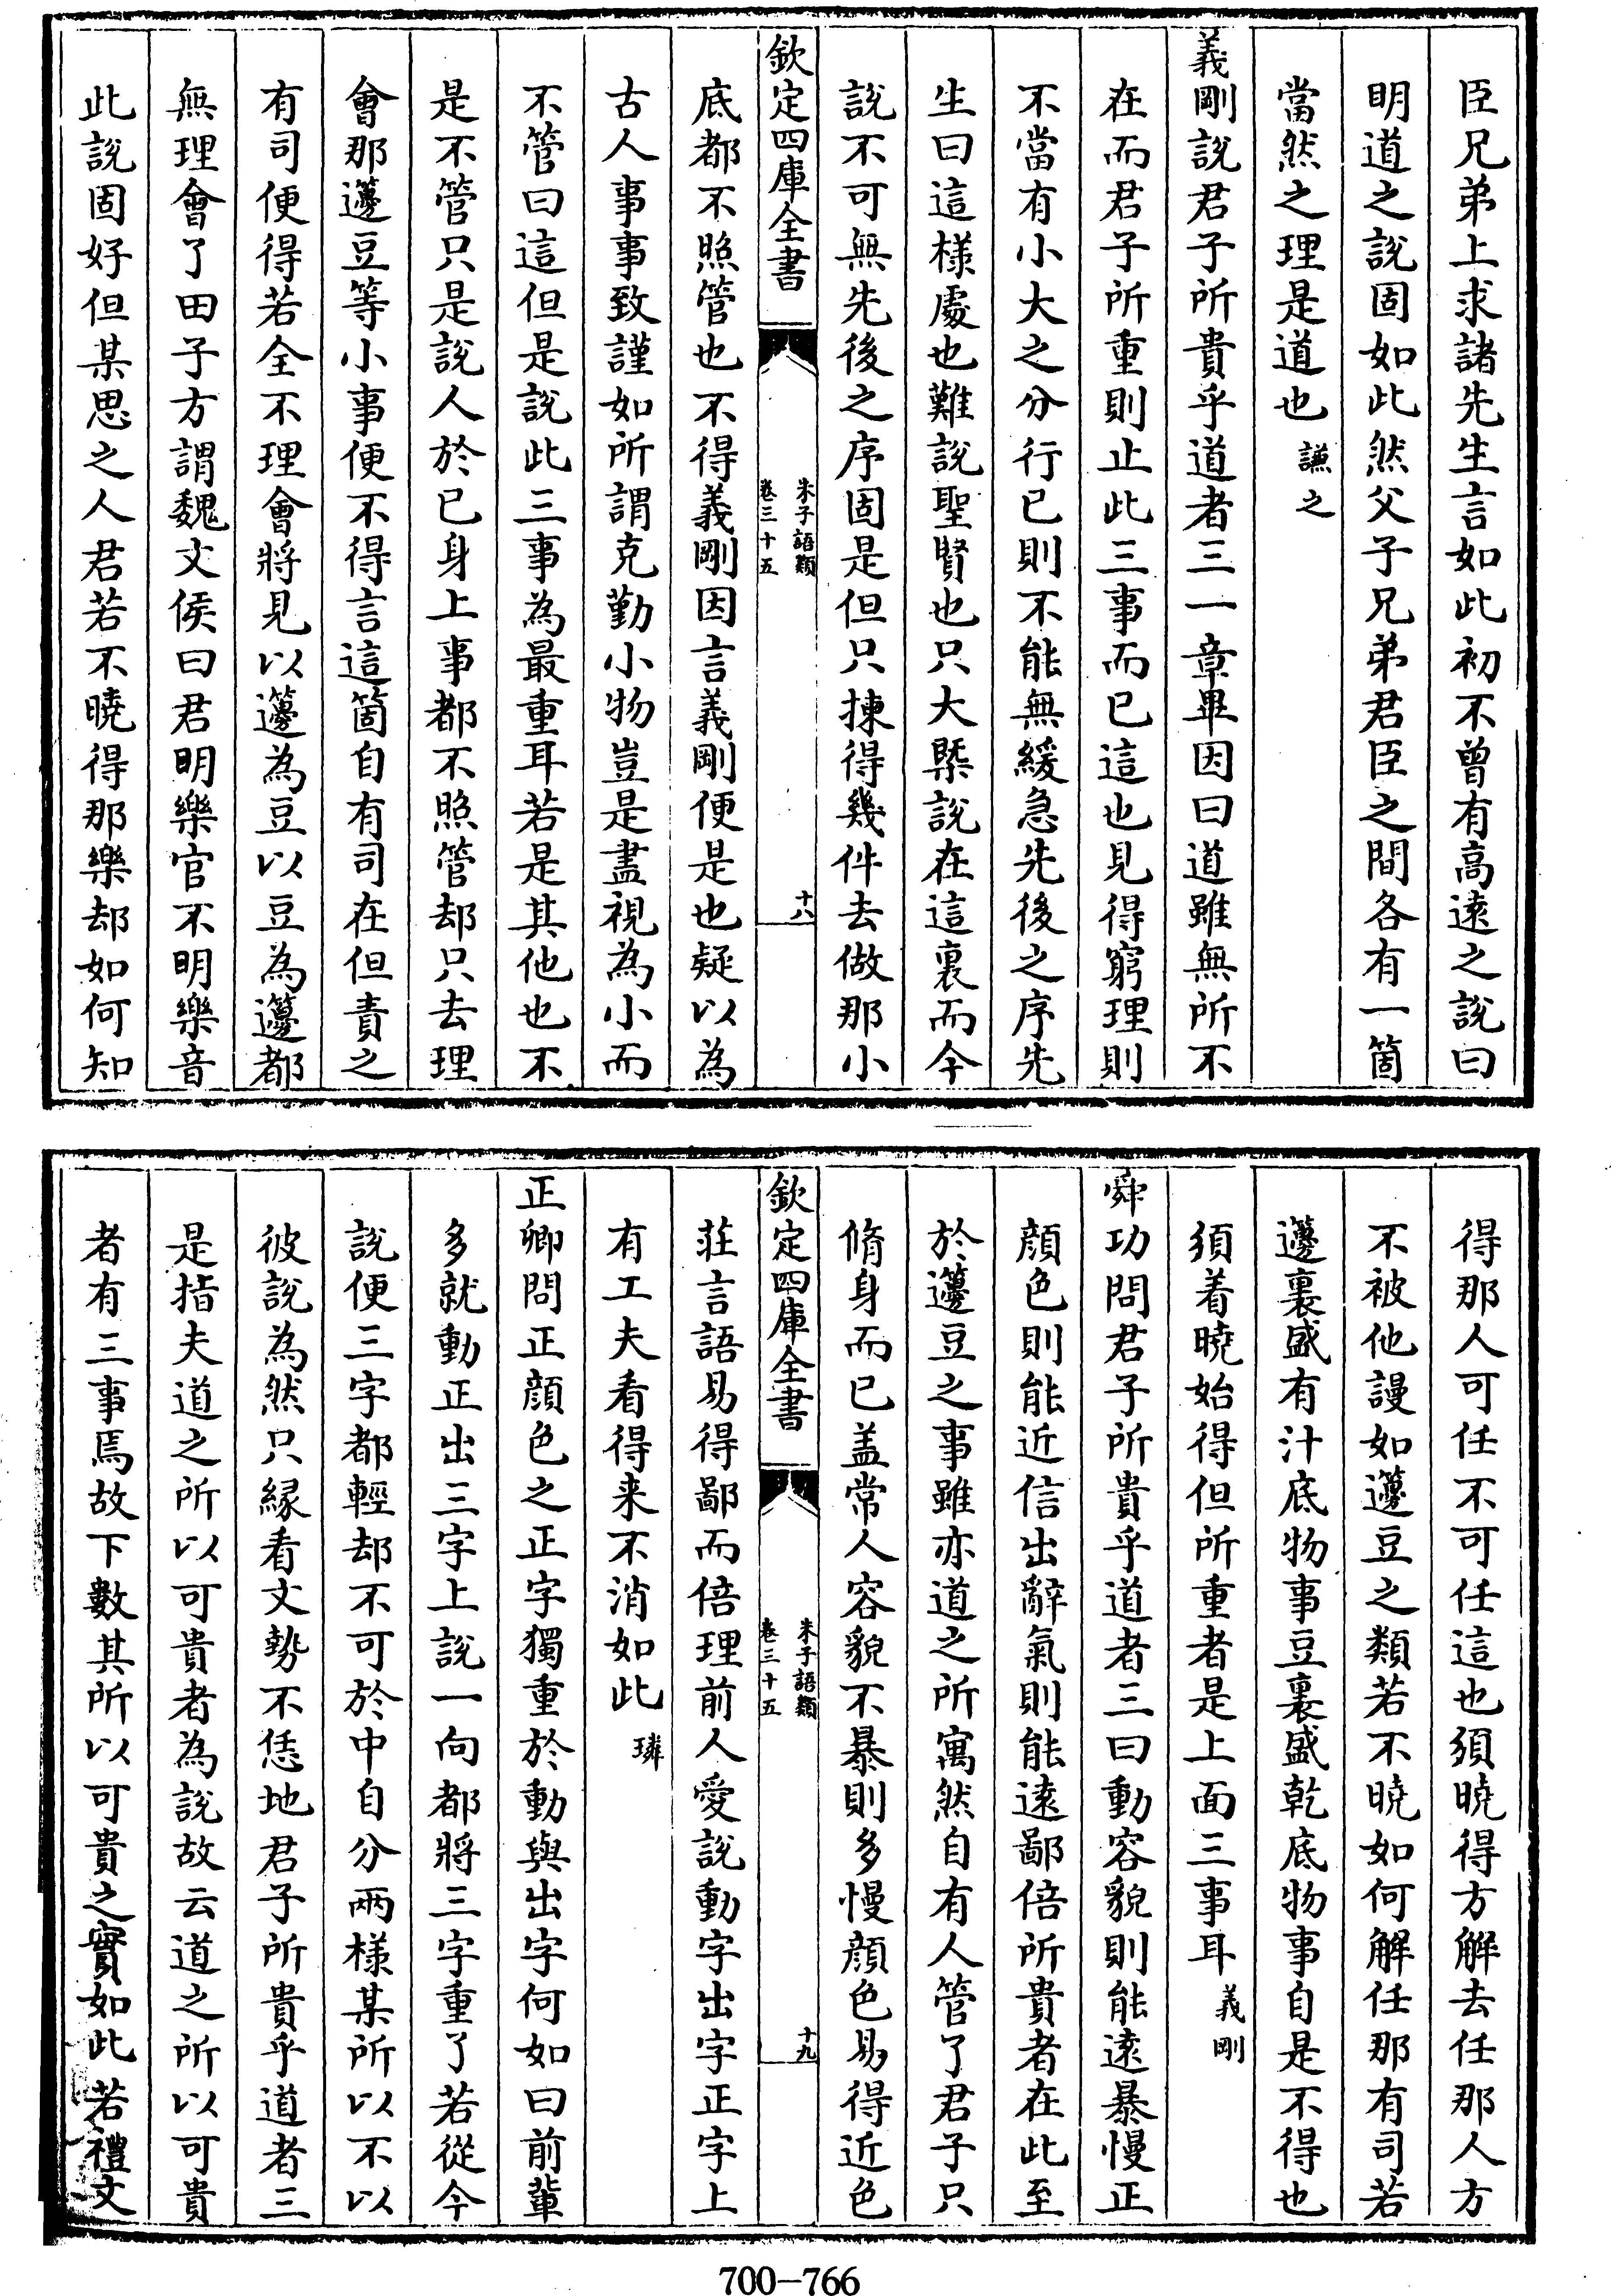 臣兄弟上求諸先生言如此初不曾有高遠之說曰
明道之說固如此然父子兄弟君臣之間各有一箇
當然之理是道也謙之
義剛說君子所貴乎道者三一章畢因曰道雖無所不
在而君子所重則止此三事而已這也見得窮理則
不當有小大之分行已則不能無緩急先後之序先
生曰這樣處也難說聖賢也只大槩說在這裏而今
說不可無先後之序固是但只揀得幾件去做那小
欽定四庫全書
朱子語類
卷三十五
十八
底都不照管也不得義剛因言義剛便是也疑以為
古人事事致謹如所謂克勤小物豈是盡視為小而
不管曰這但是說此三事為最重耳若是其他也不
是不管只是說人於已身上事都不照管却只去理
會那籩豆等小事便不得言這箇自有司在但責之
有司便得若全不理會將見以籩為豆以豆為籩都
無理會了田子方謂魏文侯曰君明樂官不明樂音
此說固好但某思之人君若不曉得那樂却如何知
得那人可任不可任這也須曉得方解去任那人方
不被他謾如籩豆之類若不曉如何解任那有司若
籩裏盛有汁底物事豆裏盛乾底物事自是不得也
須着曉始得但所重者是上面三事耳義剛
舜功問君子所貴乎道者三曰動容貌則能遠暴慢正
顏色則能近信出辭氣則能遠鄙倍所貴者在此至
於籩豆之事雖亦道之所寓然自有人管了君子只
脩身而已盖常人容貌不暴則多慢顏色易得近色
欽定四庫全書
朱子語類
卷三十五
十九
莊言語易得鄙而倍理前人愛說動字出字正字上
有工夫看得来不消如此璘
正卿問正顏色之正字獨重於動與出字何如曰前輩
多就動正出三字上說一向都將三字重了若從今
說便三字都輕却不可於中自分兩様某所以不以
彼說為然只緣看文勢不恁地君子所貴乎道者三
是指夫道之所以可貴者為說故云道之所以可貴
者有三事焉故下數其所以可貴之實如此若禮文
700-766